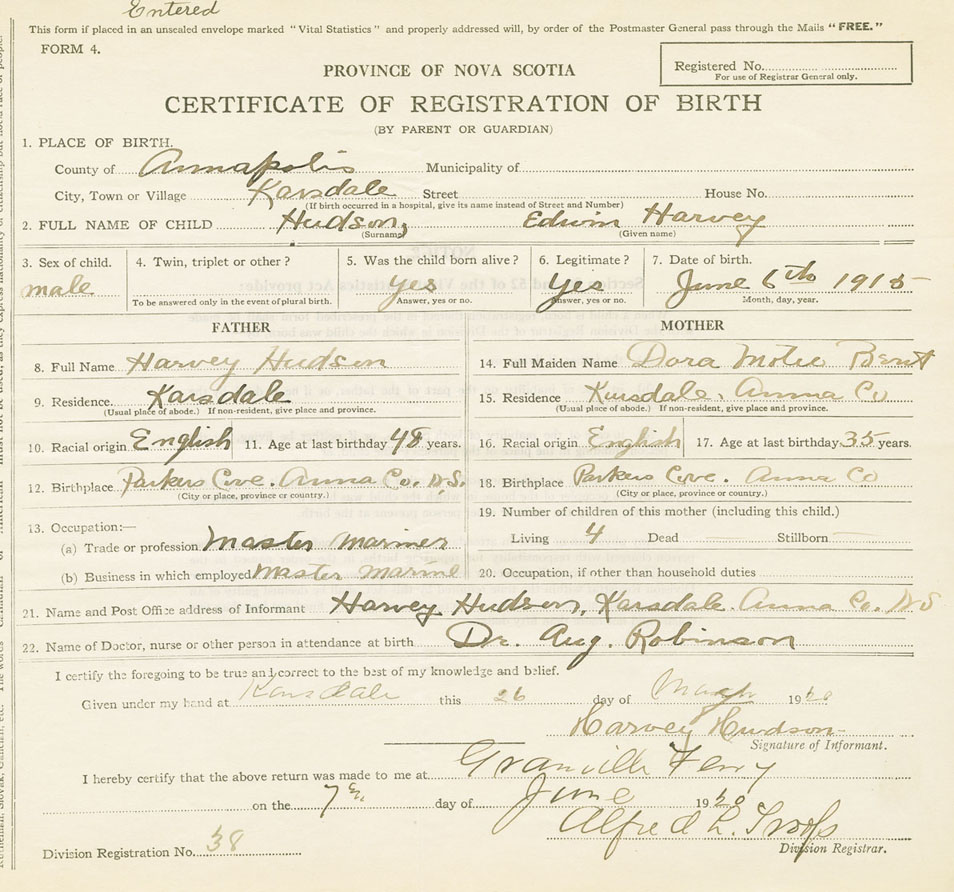 Entered
This form if placed in an unsealed envelope marked "Vital Statistics" and properly addressed will, by order of the Postmaster General pass through the Mails "FREE."
FORM 4.
Registered No.
For use of Registrar General only.
PROVINCE OF NOVA SCOTIA
CERTIFICATE OF REGISTRATION OF BIRTH
(BY PARENT OR GUARDIAN)
1. PLACE OF BIRTH.
County of Annapolis Municipality of
City, Town or Village Karsdale Street House No.
(If birth occurred in a hospital, give its name instead of Street and Number)
2. FULL NAME OF CHILD Hudson, Edwin Harvey
(Surname) (Given name)
3. Sex of child. 4. Twin, triplet or other? 5. Was the child born alive? 6. Legitimate? 7. Date of birth.
male yes yes June 6th 1915
To be answered only in the event of plural birth. Answer, yes or no. Answer, yes or no. Month, day, year.
FATHER MOTHER
8. Full Name Harvey Hudson 14. Full Maiden Name Dora Bent
9. Residence. Karsdale 15. Residence Karsdale. Anna Co
(Usual place of abode.) If non-resident, give place and province. (Usual place of abode.) If non-resident, give place and province.
10. Racial origin English 11. Age at last birthday 48 years. 16. Racial origin English 17. Age at last birthday 35 years.
12. Birthplace Parkers Cove. Anna Co. N.S. 18. Birthplace Parkers Cove. Anna Co
(City or place, province or country.) (City or place, province or country.)
13. Occupation:— 19. Number of children of this mother (including this child.)
(a) Trade or profession Master Mariner Living 4 Dead Stillborn
(b) Business in which employed Master Marine 20. Occupation, if other than household duties
21. Name and Post Office address of Informant Harvey Hudson, Karsdale. Anna Co. N S
22. Name of Doctor, nurse or other person in attendance at birth Dr. Aug. Robinson
I certify the foregoing to be true and correct to the best of my knowledge and belief.
Given under my hand at Karsdale this 26 day of 1920
Harvey Hudson
Signature of Informant.
I hereby certify that the above return was made to me at Granville Ferry
on the 7th day of June 1920
Alfred L. Troop
Division Registrar.
Division Registration No. 38